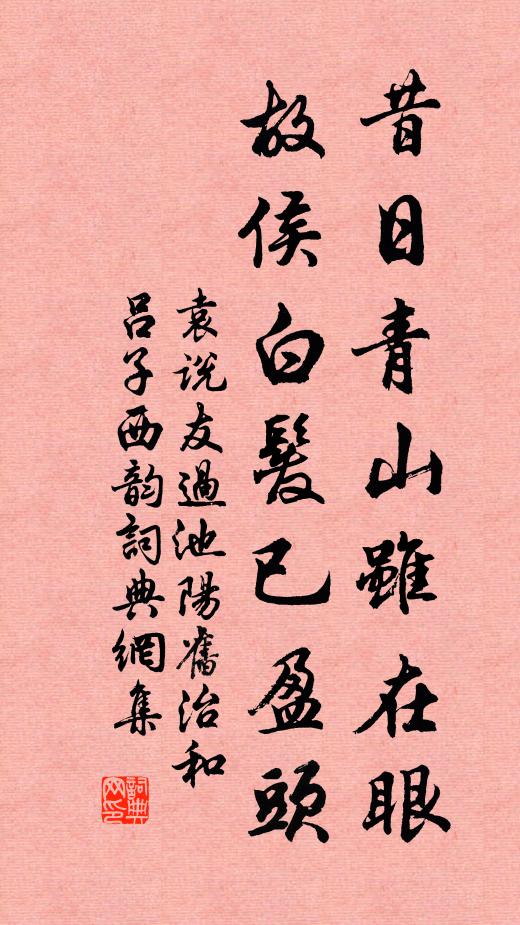 昔日青山雖在眼
故侯白髮已盈頭
袁說友過池陽舊治和
呂子西韵詞典網集
詞典網印